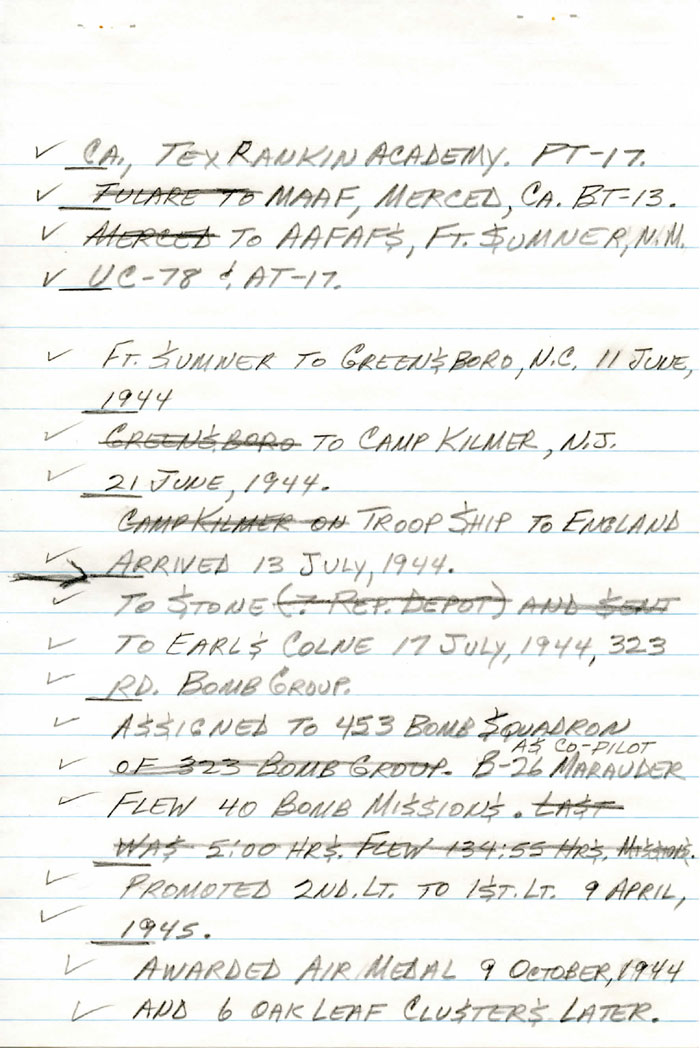 CA., TEX RANKIN ACADEMY. PT-17.
TULARE TO MAAF, MERCED, CA. BT-13.
MERCED TO AAFAFS, FT. SUMNER, N.M.
UC-78 & AT-17.
FT. SUMNER TO GREENSBORO, N.C. 11 JUNE,
1944
GREENSBORO TO CAMP KILMER, N.J.
21 JUNE, 1944.
CAMP KILMER ON TROOP SHIP TO ENGLAND
ARRIVED 13 JULY, 1944.
TO STONE (7 REP. DEPOT) AND SENT
TO EARLS COLNE 17 JULY, 1944, 323
RD. BOMB GROUP.
ASSIGNED TO 453 BOMB SQUADRON
AS CO-PILOT
OF 323 BOMB GROUP. B-26 MARAUDER
FLEW 40 BOMB MISSIONS. LAST
WAS 5:00 HRS. FLEW 134:55 HRS. MISSIONS.
PROMOTED 2ND. LT. TO 1ST. LT. 9 APRIL,
1945.
AWARDED AIR MEDAL 9 OCTOBER, 1944
AND 6 OAK LEAF CLUSTERS LATER.